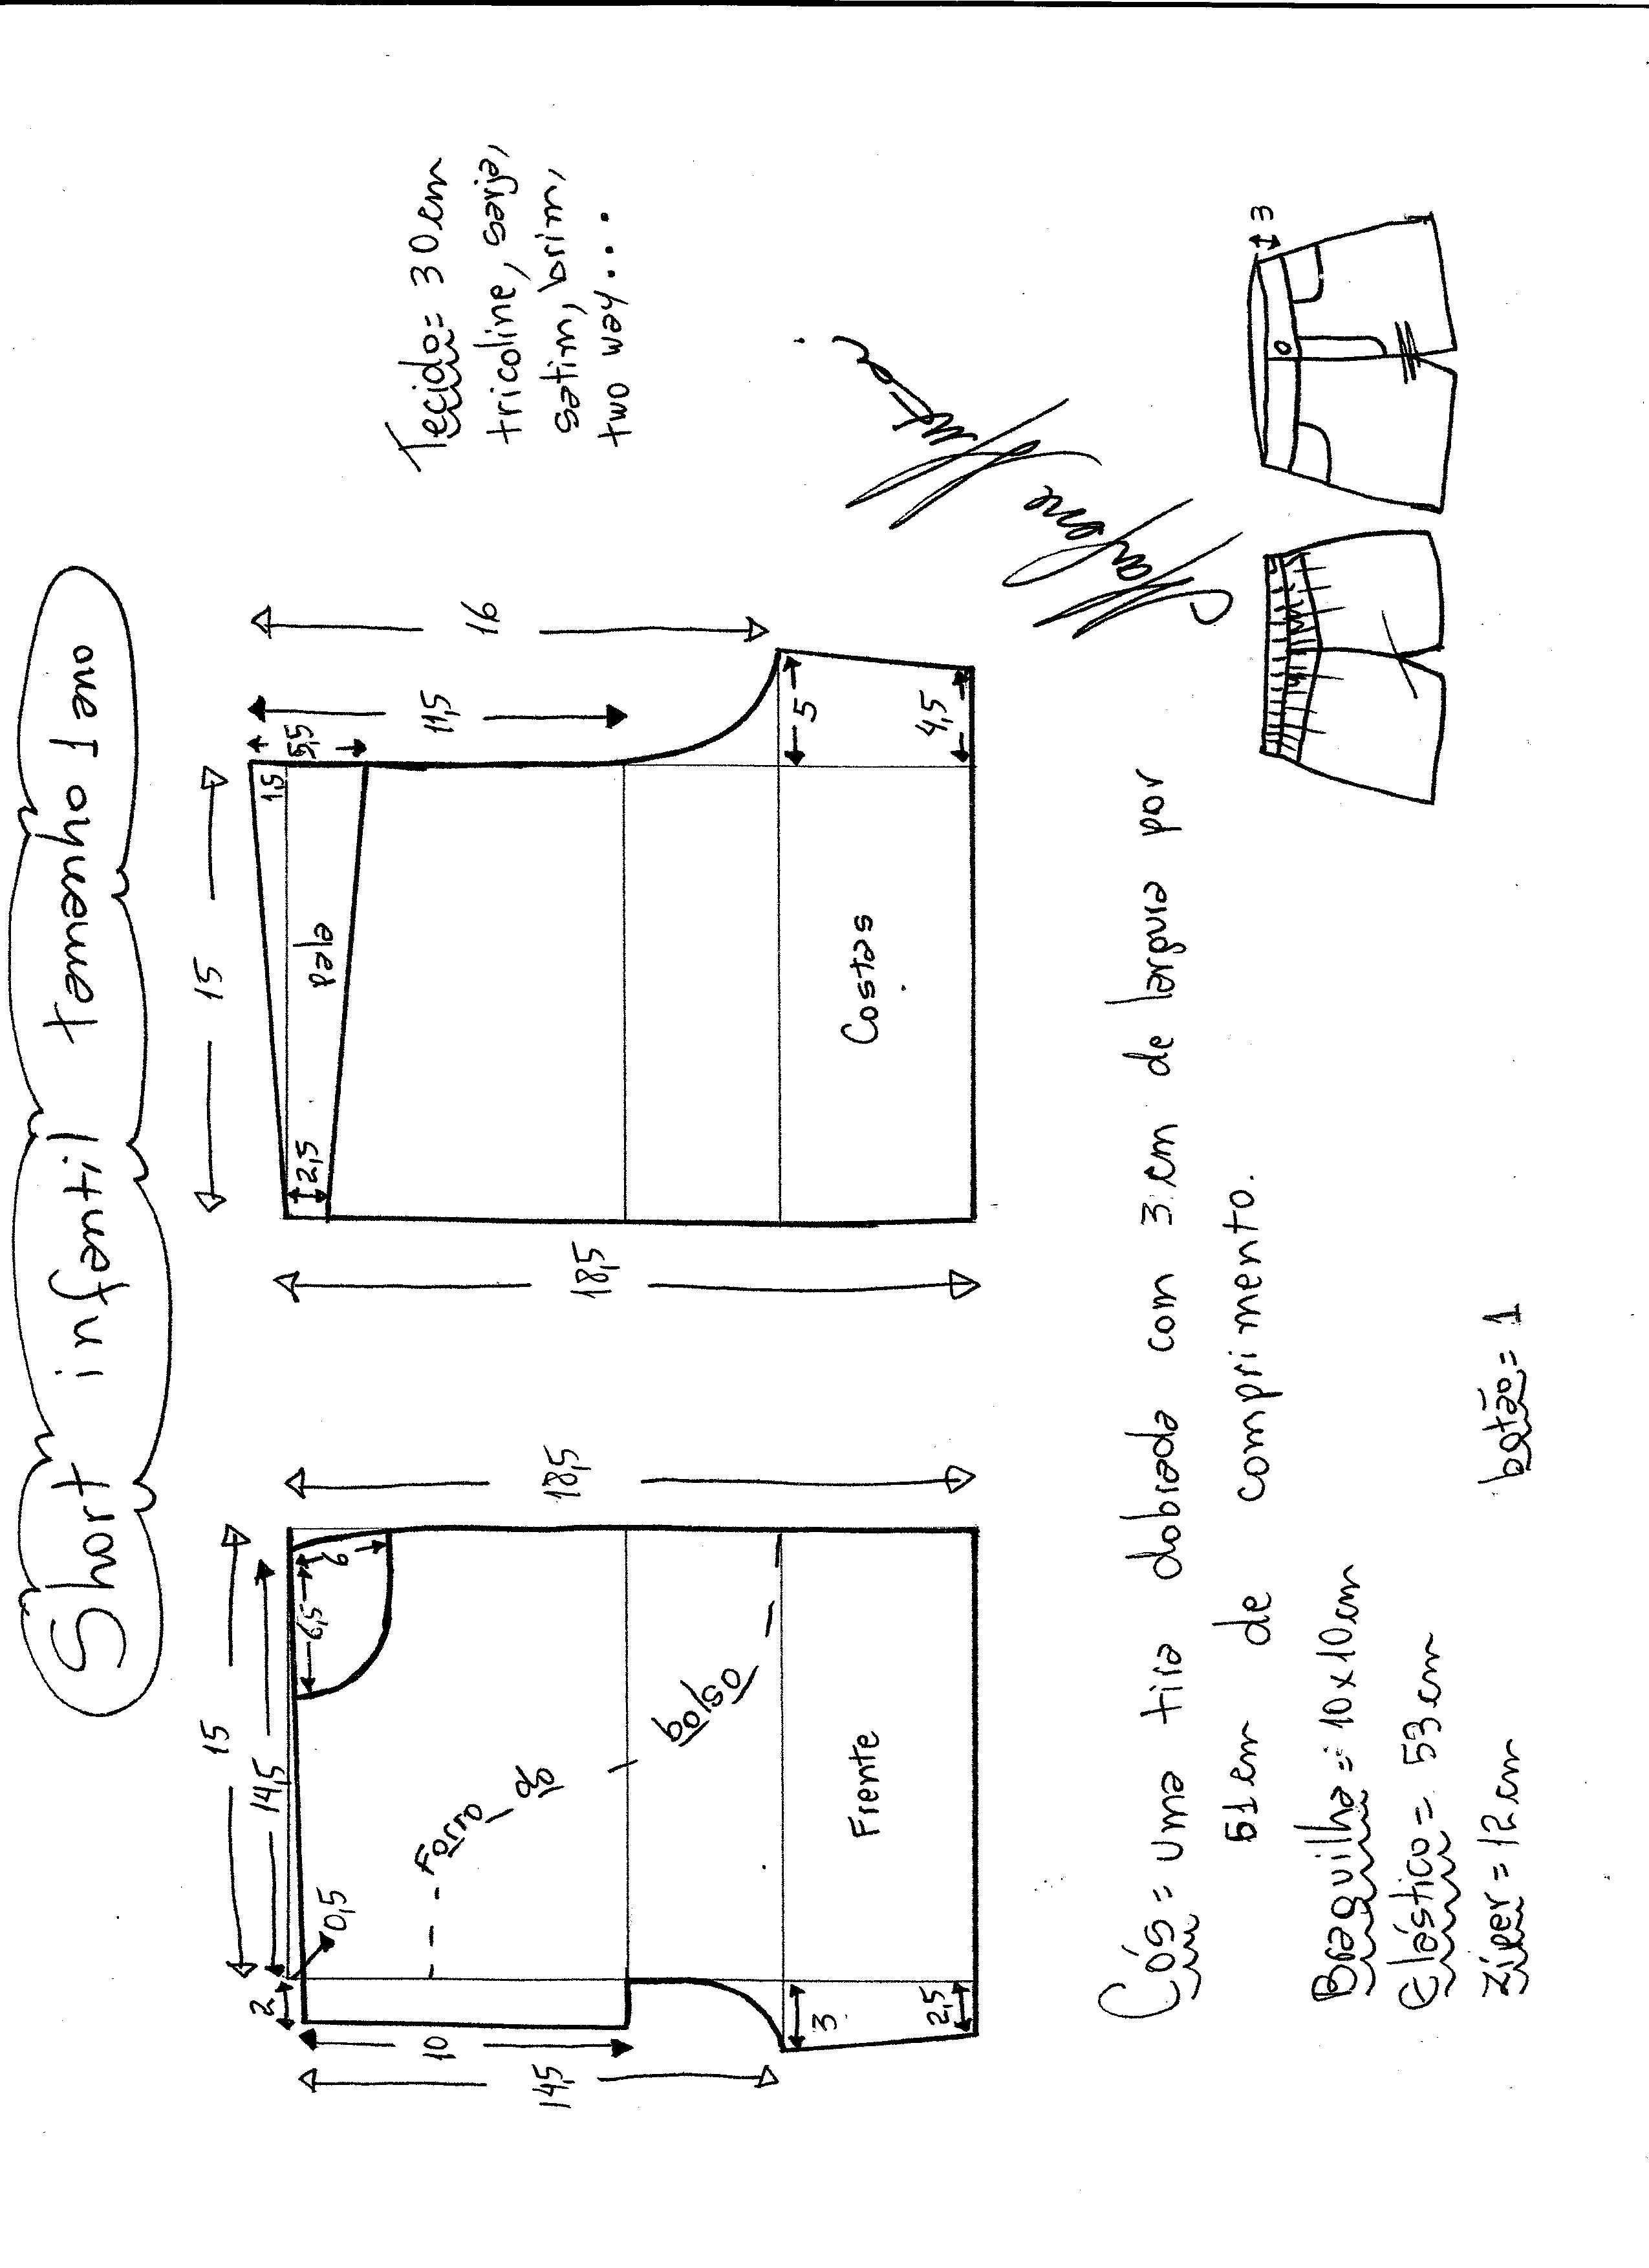 Short infantil tamanho 1 ano
15
14,5
2
0,5
6,5
6
10
14,5
18,5
Forro do bolso
3
2,5
Frente
15
1,5
5,5
11,5
16
2,5
pala
18,5
5
4,5
Costas
Tecido= 30 cm
tricoline, sarja,
satim, brim,
two way...
Marlene Mukai
3
Cós = uma tira dobrada com 3 cm de largura por
51 cm de comprimento.
Braguilha = 10 x 10 cm
Elástico = 53 cm
zíper = 12 cm botão = 1